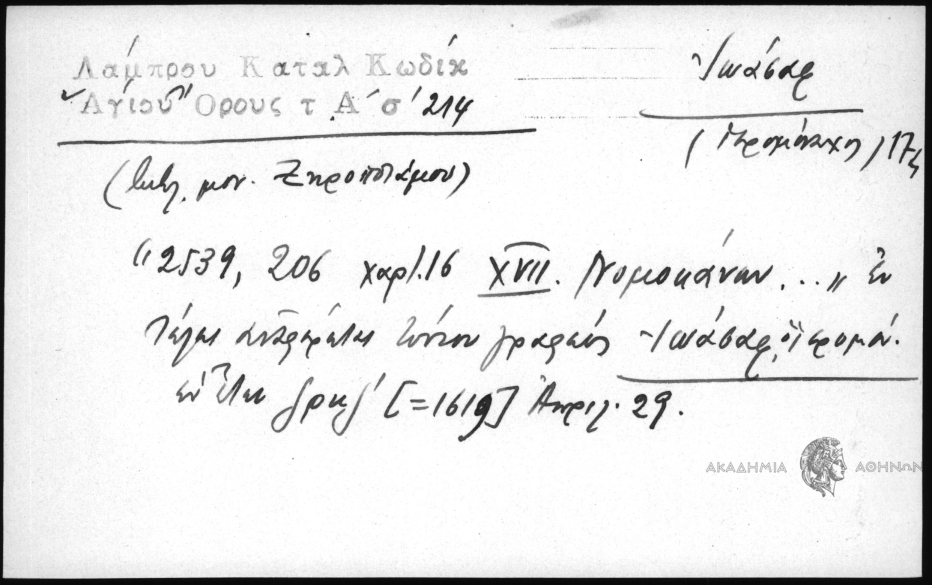 Λάμπρου Καταλ Κωδίκ
Αγίου Όρους τ Α΄ σ΄ 214
Ἰωάσαφ
(Ἱερομόναχος) 17ς
μον. Ξηροποτάμου)
"2539, 206 χαρτ. 16 XVII. Νομοκάνων ... " Ἐν
τέλει τούτου γραφεὺς Ἰωάσαφ, ὁ ἱερομόν.
ἐν ἔτει ζρκζ΄ [=1619] Ἀπριλ. 29.
ΑΚΑΔΗΜΙΑ ΑΘΗΝΩΝ